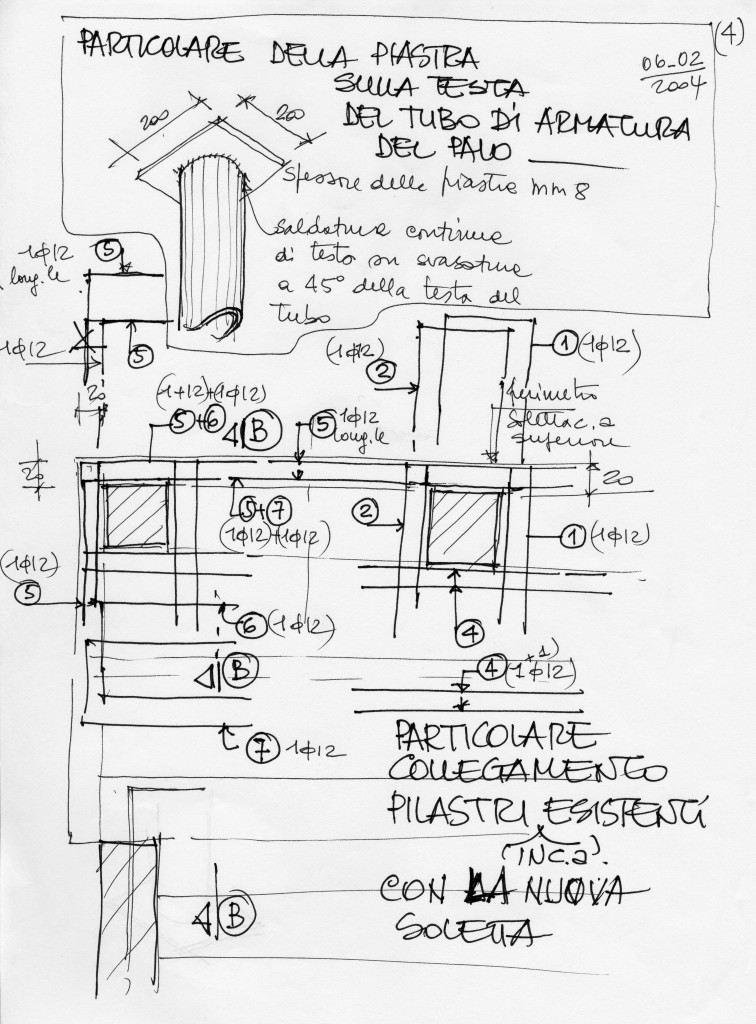 (4)
PARTICOLARE DELLA PIASTRA
SULLA TESTA
DEL TUBO DI ARMATURA
DEL PALO
06-02
2004
200
200
spessore delle piastre mm 8
saldatura continua
di testa su svasatura
a 45° della testa del
tubo
1Φ12
long.le
5
1Φ12
5
20
(1Φ12)
2
1 (1Φ12)
perimetro
soletta c.a
superiore
(1+12)+(1Φ12)
5+6
B
5
1Φ12
long.le
20
20
5+7
(1Φ12)+(1Φ12)
2
1 (1Φ12)
(1Φ12)
5
6 (1Φ12)
4
B
4 (1Φ12)
+1)
7 1Φ12
PARTICOLARE
COLLEGAMENTO
PILASTRI ESISTENTI
(IN C.A).
CON LA NUOVA
SOLETTA
B